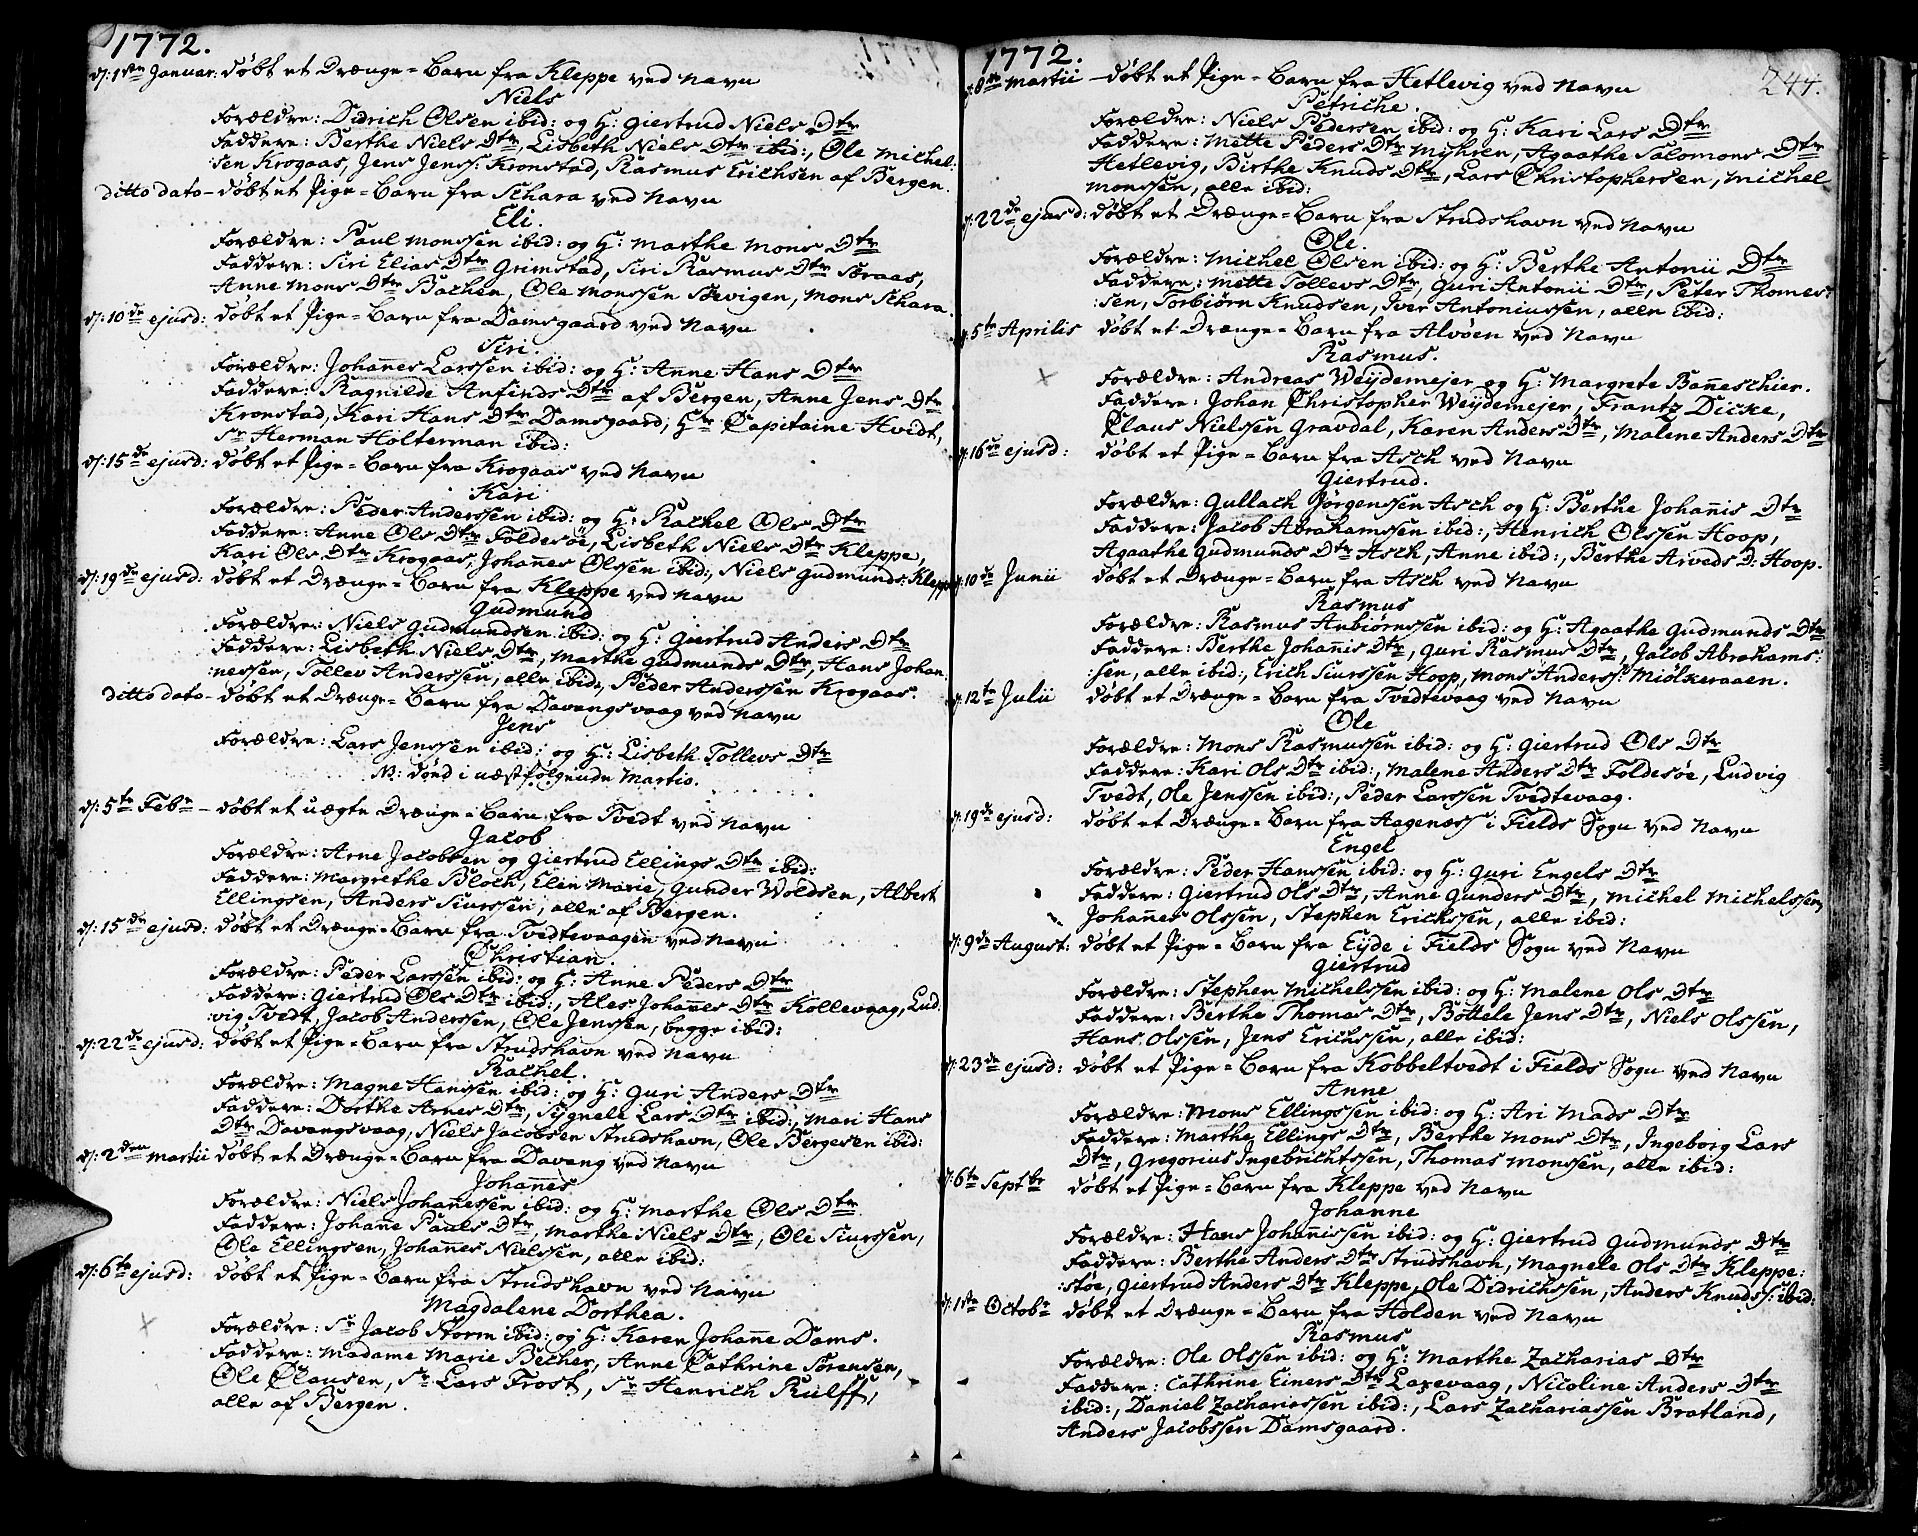 1772.
d: 1ste Januar. døbt et Drænge-Barn fra Kleppe ved Navn
Niels
Forældre: Didrich Olsen ibid: og H: Giertrud Niels Dtr
Faddere: Berthe Niels Dtr, Lisbeth Niels Dtr ibid:, Ole Michel:
sen Krogaas, Jens Jenss: Kronstad, Rasmus Erichsen af Bergen.
ditto dato - døbt et Pige-Barn fra Schara ved Navn
Eli.
Forældre: Paul Monssen ibid: og H: Marthe Mons Dtr
Faddere: Siri Elias Dtr Grimstad, Siri Rasmus Dtr Straas,
Anne Mons Dtr Bachen, Ole Monssen Bevigen, Mons Schara.
d: 10de ejusd: døbt et Pige-Barn fra Damsgaard ved Navn
Siri.
Forældre: Johannes Larssen ibid: og H: Anne Hans Dtr
Faddere: Ragnilde Anfinds Dtr af Bergen, Anne Jens Dtr
Kronstad, Kari Hans Dtr Damsgaard, Hr Capitaine Hvidt,
Sr Herman Holterman ibid:
d: 15de ejusd: døbt et Pige-Barn fra Krogaas ved Navn
Kari
Forældre: Peder Anderssen ibid: og H: Rachel Ols Dtr
Faddere: Anne Ols Dtr Foldesøe, Lisbeth Niels Dtr Kleppe,
Kari Ols Dtr Krogaas, Johannes Olssen ibid:, Niels Gudmunds: Kleppe
d: 19de ejusd: døbt et Drænge-Barn fra Kleppe ved Navn
Gudmund
Forældre: Niels Gudmundsen ibid: og H: Giertrud Anders Dtr
Faddere: Lisbeth Niels Dtr, Marthe Gudmunds Dtr, Hans Johan
nessen, Tollev Anderssen, alle ibid:, Peder Anderssen Krogaas.
ditto dato - døbt et Drænge-Barn fra Davangsvaag ved Navn
Jens
Forældre: Lars Jenssen ibid: og H: Lisbeth Tollevs Dtr
NB: døed i næstfølgende Martio.
d: 5te Febr - døbt et uægte Drænge-Barn fra Tvedt ved Navn
Jacob
Forældre: Arne Jacobsen og Giertrud Ellings Dtr ibid:
Faddere: Margrethe Bloch, Elin Marie, Gunder Woldsen, Albert
Ellingsen, Anders Siurssen, alle af Bergen.
d: 15de ejusd: døbt et Drænge-Barn fra Tvedtevaagen ved Navn
Christian.
Forældre: Peder Larssen ibid: og H: Anne Peders Dtr
Faddere: Giertrud Ols Dtr ibid:, Ales Johannes Dtr Kollevaag, Lud
vig Tvedt, Jacob Anderssen, Ole Jenssen, begge ibid:
d: 22de ejusd: døbt et Pige-Barn fra Strudshavn ved Navn
Rachel.
Forældre: Magne Hanssen ibid: og H: Guri Anders Dtr
Faddere: Dorthe Arnes Dtr, Signele Lars Dtr ibid:, Mari Hans
Dtr Davangsvaag, Niels Jacobsen Strudshavn, Ole Bergesen ibid:
d: 2den Martii døbt et Drænge-Barn fra Davang ved Navn
Johannes
Forældre: Niels Johannessen ibid: og H: Marthe Ols Dtr.
Faddere: Johane Pauls Dtr, Marthe Niels Dtr, Ole Siurssen,
Ole Ellingsen, Johannes Nielssen, alle ibid:
d: 6te ejusd: døbt et Pige-Barn fra Strudshavn ved Navn
Magdalene Dorthea.
Forældre: Sr Jacob Storm ibid: og H: Karen Johanne Dams.
Faddere: Madame Marie Becher, Anne Cathrine Sørensen,
Ole Clausen, Sr Lars Frost, Sr Henrich Rülffs,
alle af Bergen.
1772.
244.
d: 8de Martii - døbt et Pige-Barn fra Hetlevig ved Navn
Petriche.
Forældre: Niels Pedersen ibid: og H: Kari Lars Dtr
Faddere: Mette Peders Dtr Myhren, Agaathe Salomons Dtr
Hetlevig, Birthe Knuds Dtr, Lars Christophersen, Michel
Monssen, alle ibid:
d: 22de ejusd: døbt et Drænge-Barn fra Strudshavn ved Navn
Ole.
Forældre: Michel Olsen ibid: og H: Berthe Antonii Dtr
Faddere: Mette Tollevs Dtr, Guri Antonii Dtr, Peter Thomes:
sen, Torbiørn Knudsen, Iver Antoniussen, alle ibid:
d: 5te Aprilis døbt et Drænge-Barn fra Alvøen ved Navn
Rasmus.
Forældre: Andreas Weijdemejer og H: Margrete Banneschier.
Faddere: Johan Christopher Weijdemejer, Frantz Dicke,
Claus Nielssen Gravdal, Karen Anders Dtr, Malene Anders Dtr
d: 16de ejusd: døbt et Pige-Barn fra Asch ved Navn
Giertrud.
Forældre: Gullach Jørgenssen Asch og H: Berthe Johannis Dtr
Faddere: Jacob Abrahamssen ibid:, Henrich Olssen Hoop,
Agaathe Gudmunds Dtr Asch, Anne ibid:, Berthe Arveds D: Hoop.
d: 10de Junii døbt et Drænge-Barn fra Asch ved Navn
Rasmus
Forældre: Rasmus Anbiørnssen ibid: og H: Agaathe Gudmunds Dtr
Faddere: Berthe Johannis Dtr, Guri Rasmus Dtr, Jacob Abrahams:
:sen, alle ibid:, Erich Siurssen Hopp, Mons Anderss: Miølkeraaen.
d: 12te Julii døbt et Drænge-Barn fra Tvedtevaag ved Navn
Ole
Forældre: Mons Rasmussen ibid: og H: Giertrud Ols Dtr
Faddere: Kari Ols Dtr ibid:, Malene Anders Dtr Foldesøe, Ludvig
Tvedt, Ole Jenssen ibid:, Peder Larssen Tvedtevaag.
d: 19de ejusd: døbt et Drænge-Barn fra Aagenæss i Fields Sogn ved Navn
Engel
Forældre: Peder Hanssen ibid: og H: Guri Engels Dtr
Faddere: Giertrud Ols Dtr, Anne Gunders Dtr, Michel Michelssen,
Johannes Olssen, Stephen Erichssen, alle ibid:
d: 9de August: døbt et Pige-Barn fra Eyde i Fields Sogn ved Navn
Giertrud
Forældre: Stephen Michelssen ibid: og H: Malene Ols Dtr
Faddere: Berthe Thomas Dtr, Bottele Jens Dtr, Niels Olssen,
Hans Olssen, Jens Erichssen, alle ibid:
d: 23de ejusd: døbt et Pige-Barn fra Kobbeltvedt i Fields Sogn ved Navn
Anne
Forældre: Mons Ellingssen ibid: og H: Ari Mads Dtr
Faddere: Marthe Ellings Dtr, Berthe Mons Dtr, Ingeborg Lars
Dtr, Gregorius Ingebrichtssen, Thomas Monssen, alle ibid:
d: 6te Septbr døbt et Pige-Barn fra Kleppe ved Navn
Johanne
Forældre: Hans Johannissen ibid: og H: Giertrud Gudmunds Dtr
Faddere: Berthe Anders Dtr Strudshavn, Magnele Ols Dtr Kleppe:
:støe, Giertrud Anders Dtr Kleppe, Ole Didrichssen, Anders Knudss: ibid:
d: 1ste Octobr døbt et Drænge-Barn fra Holden ved Navn
Rasmus
Forældre: Ole Olssen ibid: og H: Marthe Zacharias Dtr
Faddere: Cathrine Einers Dtr Laxevaag, Nicoline Anders Dtr
ibid:, Daniel Zachariassen ibid:, Lars Zachariassen Bratland,
Anders Jacobssen Damsgaard.